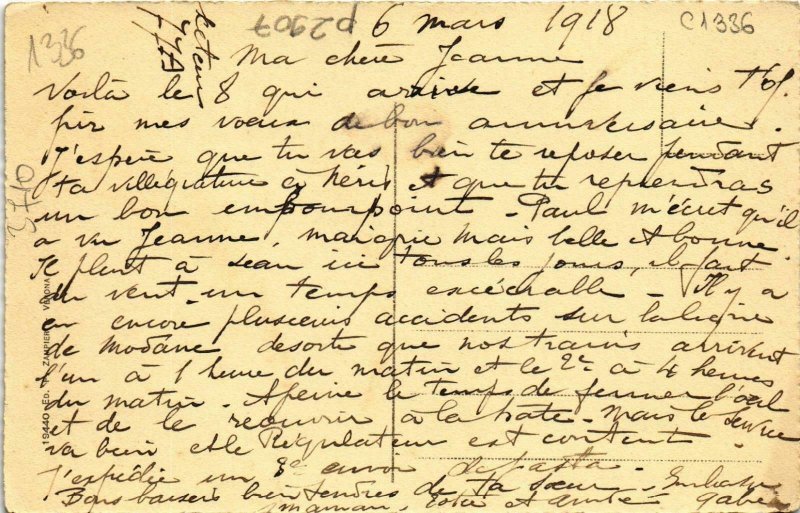 1336
p2907
C1336
3710
6 mars 1918
Ma chère Jeanne
Voilà le 8 qui arrive et je viens t'of-
frir mes voeux de bon anniversaire.
J'espère que tu vas bien te reposer pendant
ta villégiature à Néris et que tu reprendras
un bon embonpoint - Paul m'écrit qu'il
a vu Jeanne, maigrie mais belle et bonne.
Il pleut à seau ici tous les jours, il fait
du vent - un temps exécrable - Il y a
eu encore plusieurs accidents sur la ligne
de Modane desorte que nos trains arrivent
l'un à 1 heure du matin et le 2e à 4 heures
du matin - A peine le temps de fermer l'oeil
et de le réouvrir à la hate - Mais le service
va bien et le Régulateur est content.
J'expédie un envoi de pasta.
Bons baisers bien tendres de ta soeur - Embrasse
maman, et amitié
19440 - ED. ZAMPIERI, VERONA